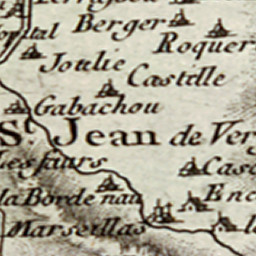 Berger
Roquer
Joulie
Castille
Gabachou
St. Jean de Ver
Casc
la Bordenau
Enc
Marseillas